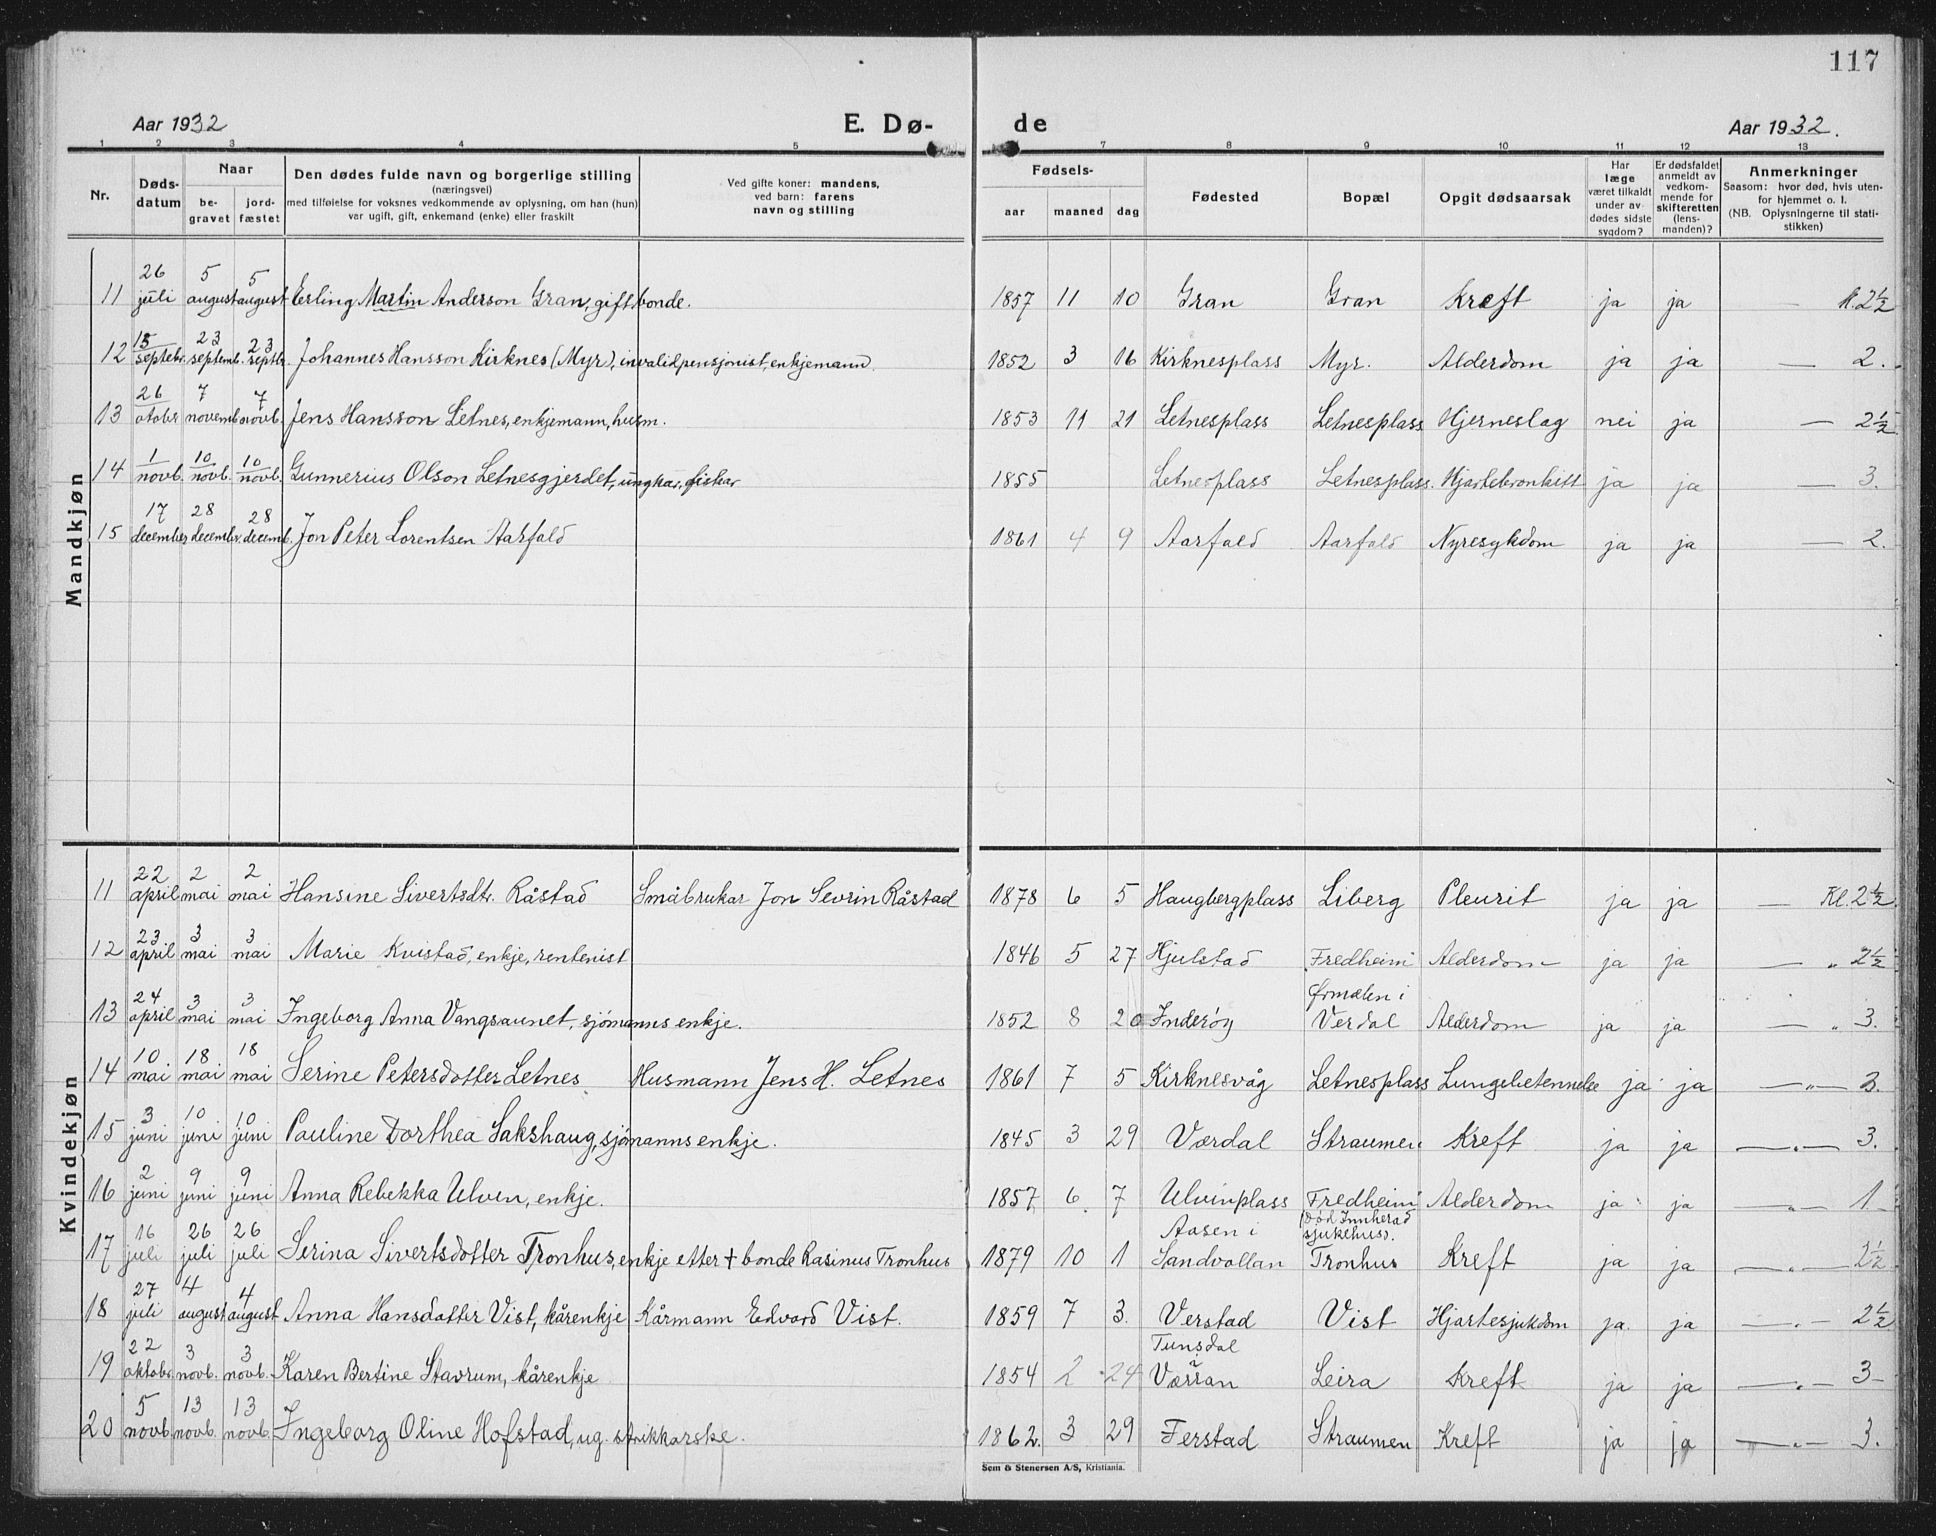 117
Aar 1932
E. Dø-
de
Aar 1932.
1 2 3 4 5 7 8 9 10 11 12 13
Nr.
Døds-
datum
Naar
be-
gravet
jord-
fæstet
Den dødes fulde navn og borgerlige stilling
(næringsvei)
med tilføielse for voksnes vedkommende av oplysning, om han (hun)
var ugift, gift, enkemand (enke) eller fraskilt
Ved gifte koner: mandens,
ved barn: farens
navn og stilling
Fødsels-
aar maaned dag
Fødested
Bopæl
Opgit dødsaarsak
Har
læge
været tilkaldt
under av-
dødes sidste
sygdom?
Er dødsfaldet
anmeldt av
vedkom-
mende for
skifteretten
(lens-
manden)?
Anmerkninger
Saasom: hvor død, hvis uten-
for hjemmet o. l.
(NB. Oplysningerne til stati-
stikken)
Mandkjøn
11 26 juli 5 august 5 august Erling Martin Anderson Gran, gift bonde. 1857 11 10 Gran Gran Kreft ja ja — kl. 2½
12 15 septebr. 23 septemb. 23 septbr. Johannes Hansson Kirknes (Myr), invalidpensjonist, enkjemann. 1852 3 16 Kirknesplass Myr. Alderdom ja ja — 2.
13 26 otobr 7 novemb. 7 novb. Jens Hansson Letnes, enkjemann, husm. 1853 11 21 Letnesplass Letnesplass Hjerneslag nei ja — 2½
14 1 novb. 10 novb. 10 novb. Gunnerius Olson Letnesgjerdet, ungkar, fiskar 1855 Letnesplass Letnesplass. Hjartebronkitt ja ja — 3.
15 17 december 28 decembr. 28 decemb. Jon Peter Lorentsen Aarfald 1861 4 9 Aarfald Aarfald Nyresykdom ja ja — 2.
Kvindekjøn
11 22 april 2 mai 2 mai Hansine Sivertsdtr. Råstad Småbrukar Jon Sevrin Råstad 1878 6 5 Haugbergplass Liberg Pleurit ja ja — Kl. 2½
12 23 april 3 mai 3 mai Marie Kvistad, enkje, rentenist 1846 5 27 Hjulstad Fredheim Alderdom ja ja — " 2½
13 24 april 3 mai 3 mai Ingeborg Anna Vangsaunet, sjömanns enkje. 1852 8 20 Inderøy Ørmælen i Verdal Alderdom ja ja — " 3.
14 10 mai 18 mai 18 mai Serine Petersdotter Letnes Husmann Jens H. Letnes 1861 7 5 Kirknesvåg Letnesplass Lungebetennelse ja ja —"— 3.
15 3 juni 10 juni 10 juni Pauline Dorthea Sakshaug, sjömanns enkje. 1845 3 29 Værdal Straumen Kreft ja ja —"— 3.
16 2 juni 9 juni 9 juni Anna Rebekka Ulven, enkje. 1857 6 7 Ulvinplass Fredheim (død Innherad sjukehus). Alderdom ja ja —"— 1
17 16 juli 26 juli 26 juli Serina Sivertsdotter Tronhus, enkje etter + bonde Rasinus Tronhus 1879 10 1 Aasen i Sandvollan Tronhus Kreft ja ja —"— 2½
18 27 juli 4 august 4 august Anna Hansdatter Vist, kårenkje Kårmann Edvard Vist. 1859 7 3. Verstad Vist Hjartesjukdom ja. ja —"— 2½
19 22 oktobr. 3 novb. 3 novb. Karen Bertine Stavrum, kårenkje 1854 2 24 Tunsdal i Værran Leira Kreft ja ja —"— 3
20 5 novb. 13 novb. 13 novb. Ingeborg Oline Hofstad, ug. strikkarske. 1862. 3 29 Ferstad Straumen Kreft ja ja —"— 3.
Sem & Stenersen A/S, Kristiania.